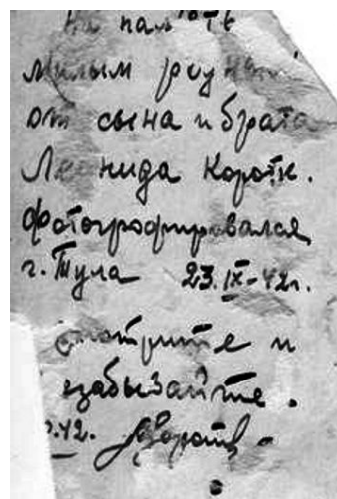 На память
милым родным
от сына и брата
Леонида Коротк.
Фотографировался
г. Тула 23.IX-42г.
Смотрите и
забывайте.
.42.